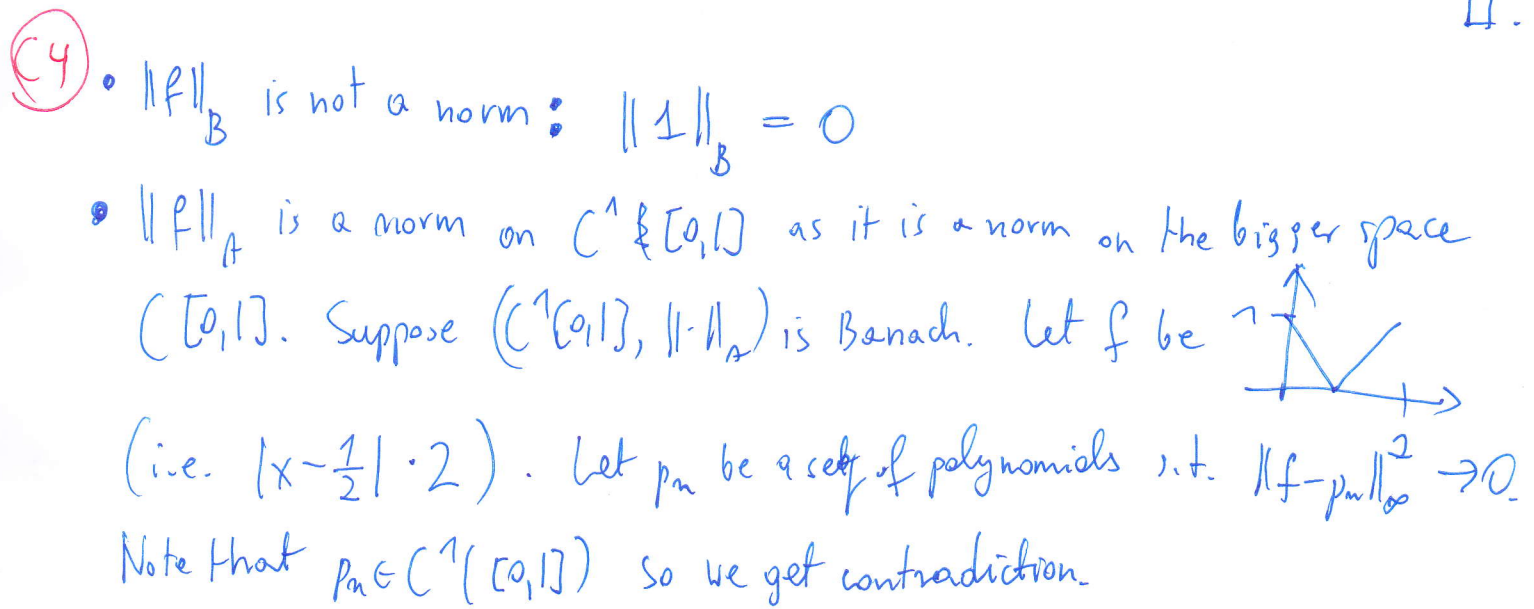 C4
• ||f||_B is not a norm: ||1||_B = 0
• ||f||_A is a norm on C^1 [0,1] as it is a norm on the bigger space
C[0,1]. Suppose (C^1[0,1], ||·||_A) is Banach. Let f be 1
(i.e. |x-1/2|·2). Let p_n be a seq of polynomials s.t. ||f-p_n||_∞^2 →0.
Note that p_n ∈ C^1([0,1]) so we get contradiction.